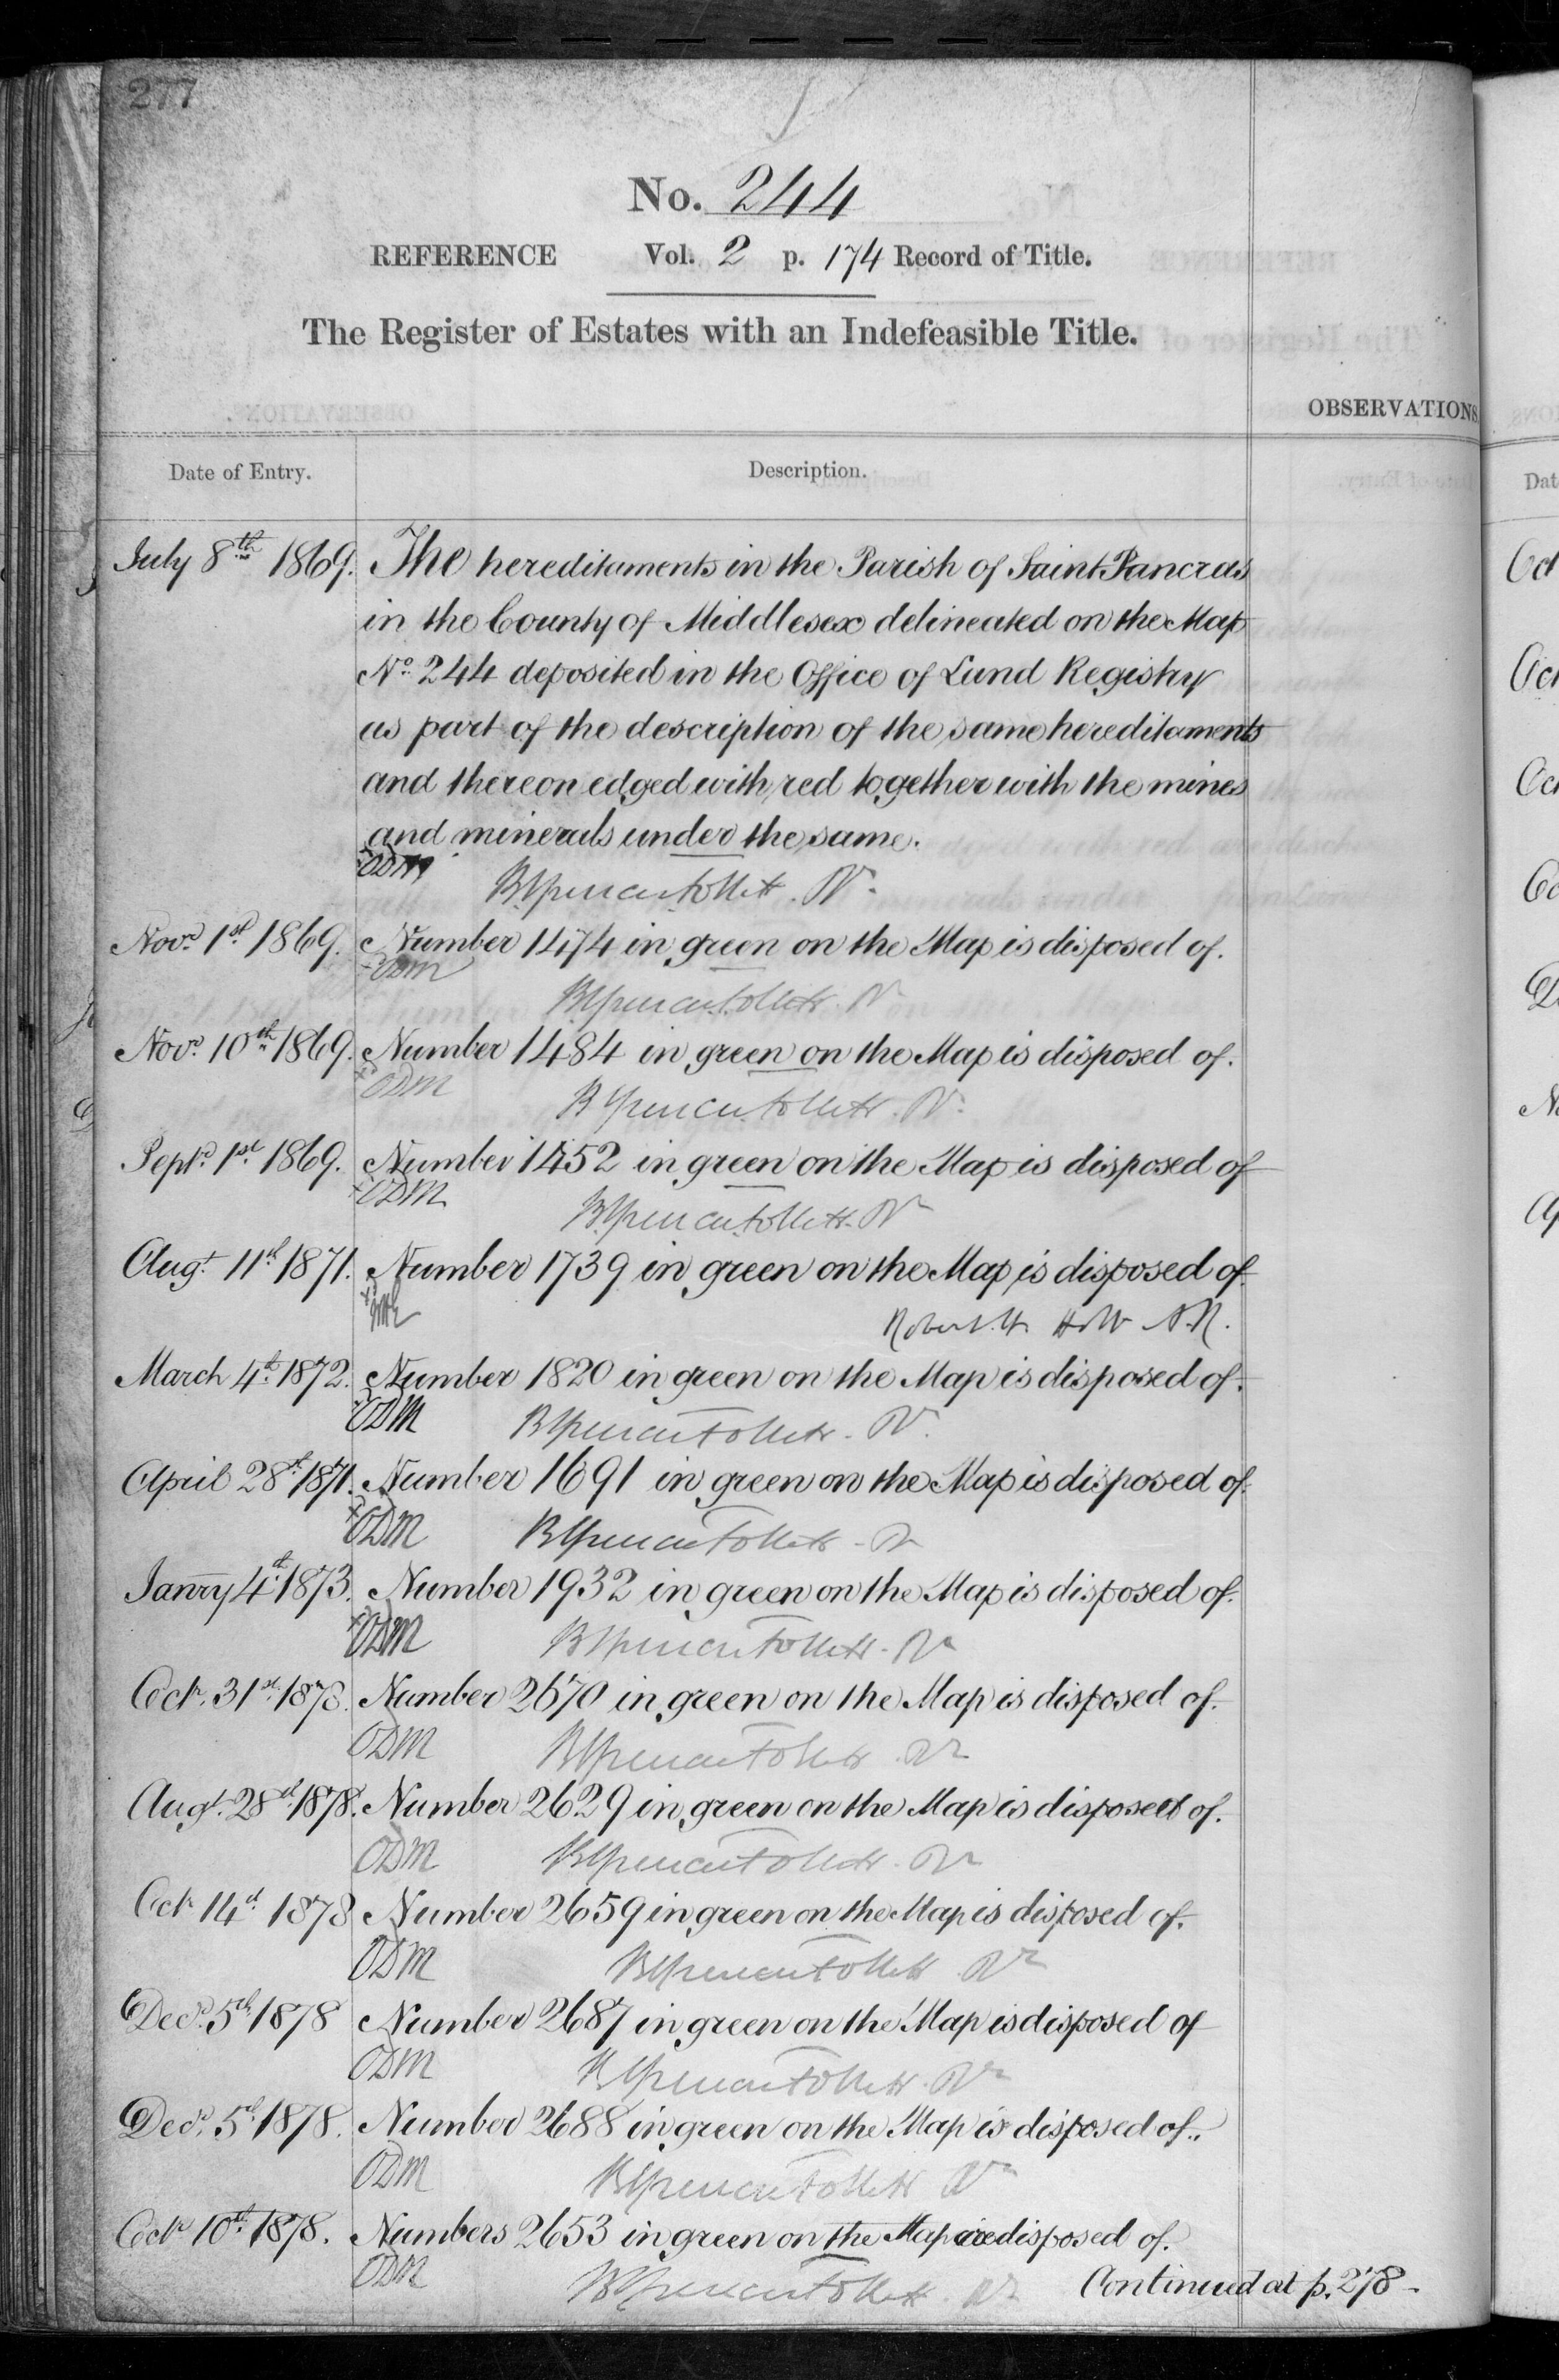 277
No. 244
REFERENCE Vol. 2 p. 174 Record of Title.
The Register of Estates with an Indefeasible Title.
OBSERVATIONS
Date of Entry. Description.
July 8th 1869. The hereditaments in the Parish of Saint Pancras
in the County of Middlesex delineated on the Map
No. 244 deposited in the Office of Land Registry
as part of the description of the same hereditaments
and thereon edged with red together with the mines
and minerals under the same.
ODM Brent Spencer Follett. Rr.
Novr. 1st 1869. Number 1474 in green on the Map is disposed of.
ODM
Novr. 10th 1869. Number 1484 in green on the Map is disposed of.
ODM
Septr. 1st 1869. Number 1452 in green on the Map is disposed of
ODM
Augt. 11th 1871. Number 1739 in green on the Map is disposed of.
Robert H. Holt A.R.
March 4th 1872. Number 1820 in green on the Map is disposed of.
ODM
April 28th 1871. Number 1691 in green on the Map is disposed of.
ODM
Janry 4th 1873. Number 1932 in green on the Map is disposed of.
ODM
Octr. 31st 1878. Number 2670 in green on the Map is disposed of.
ODM
Augt. 28th 1878. Number 2629 in green on the Map is disposed of.
ODM
Octr 14th 1878 Number 2659 in green on the Map is disposed of.
ODM
Decr. 5th 1878 Number 2687 in green on the Map is disposed of
ODM
Decr. 5th 1878. Number 2688 in green on the Map is disposed of.
ODM
Octr 10th 1878. Numbers 2653 in green on the Map are disposed of.
ODM
Continued at p. 278